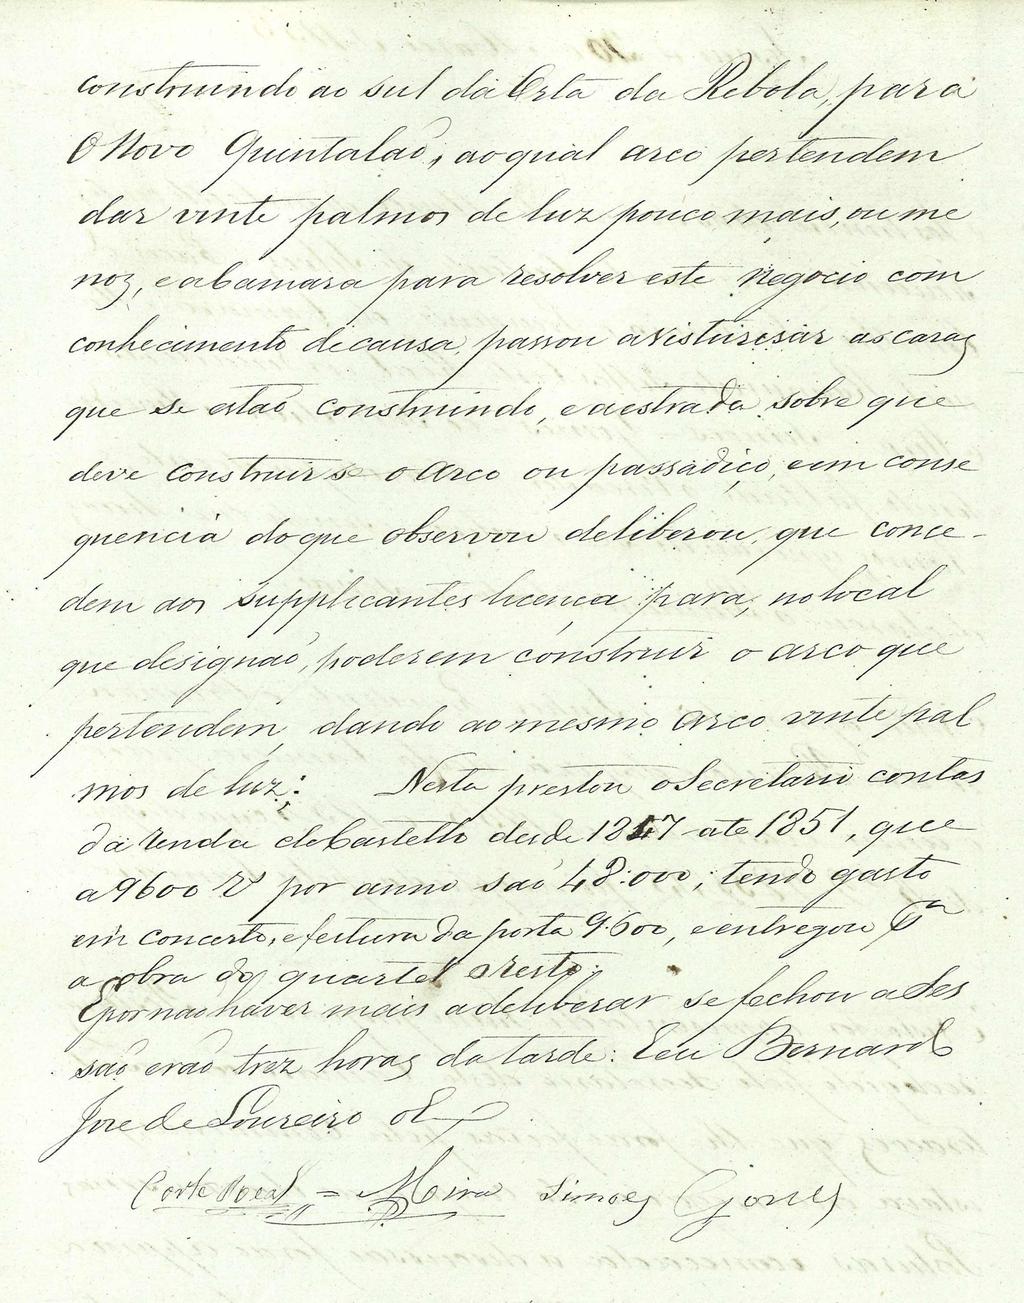 construindo ao sul da Orta da Rebola, para
O Novo Quintalaõ, ao qual arco pertendem
dar vinte palmos de luz pouco mais, ou me
noz, e a Camara para resolver este negocio com
conhecimento de causa, passou a visturisar as cazas
que se estaõ construindo, e a estrada sobre que
deve construir se o arco ou passadiço, e em conse
quencia do que observou deliberou, que conce-
dem aos supplicantes licença para, no local
que designaõ, poderem construir o arco que
pertendem, dando ao mesmo arco vinte pal
mos de luz: Nesta prestou o Secretario contas
da renda do Castello desde 1847 ate 1851, que
a 9600 rs por anno saõ 48:000; tendo gasto
em concerto, e feitura da porta 9:600, e entregou pa
a obra do quartel o resto.
E por naõ haver mais a deliberar se fechou a Ses
saõ eraõ trez horas da tarde: E eu Bernardo
Joze de Loureiro
Corte Real = Mira Simoes Gomes